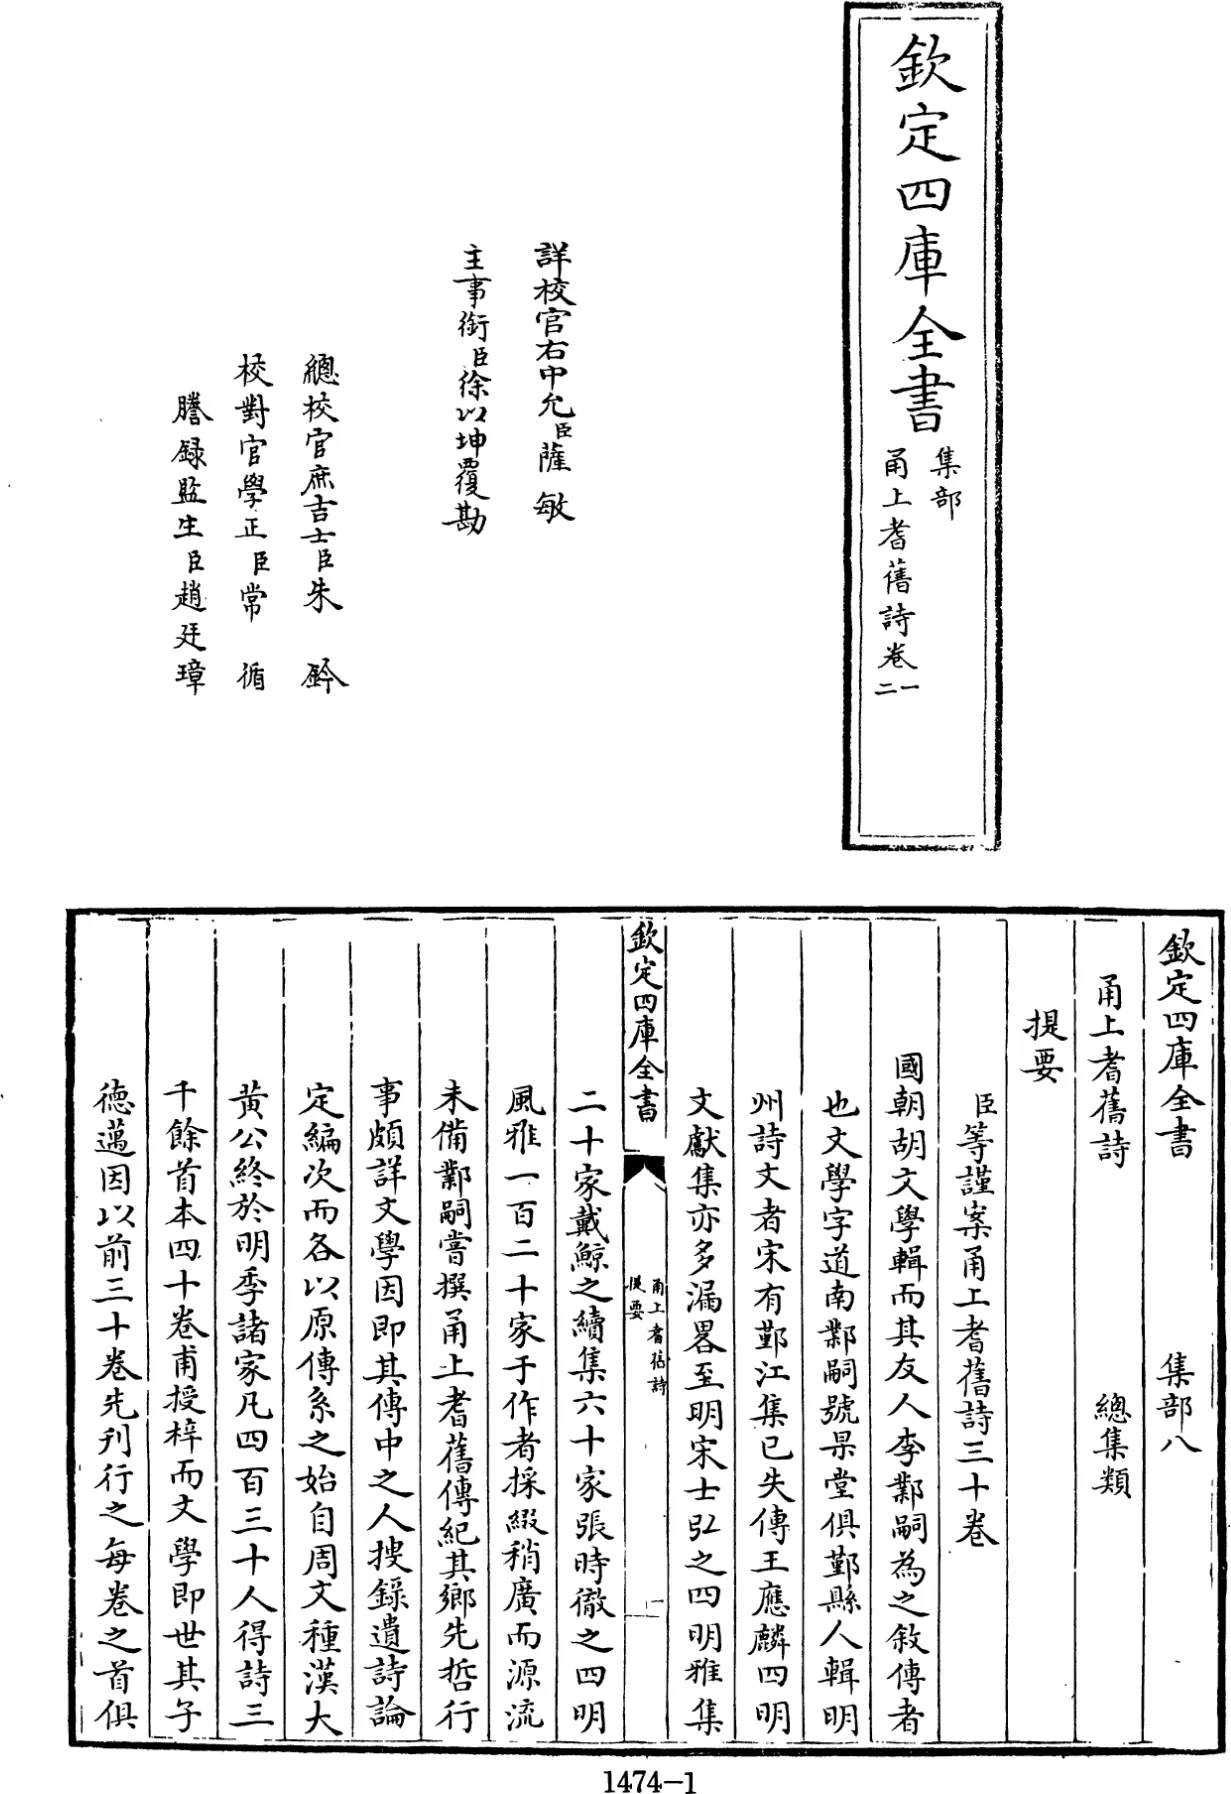 欽定四庫全書
集部
甬上耆舊詩卷一
二
詳校官右中允臣薩敏
主事銜臣徐以坤覆勘
總校官庶吉士臣朱鈐
校對官學正臣常循
謄録監生臣趙廷璋
欽定四庫全書 集部八
甬上耆舊詩 總集類
提要
臣等謹案甬上耆舊詩三十卷
國朝胡文學輯而其友人李鄴嗣為之敘傳者
也文學字道南鄴嗣號杲堂俱鄞縣人輯明
州詩文者宋有鄞江集已失傳王應麟四明
文獻集亦多漏畧至明宋士弘之四明雅集
欽定四庫全書
甬上耆舊詩
提要
一
二十家戴鯨之續集六十家張時徹之四明
風雅一百二十家于作者採綴稍廣而源流
未備鄴嗣嘗撰甬上耆舊傳紀其鄉先哲行
事頗詳文學因即其傳中之人搜錄遺詩論
定編次而各以原傳系之始自周文種漢大
黃公終於明季諸家凡四百三十人得詩三
千餘首本四十卷甫授梓而文學即世其子
德邁因以前三十卷先刋行之每卷之首俱
1474-1